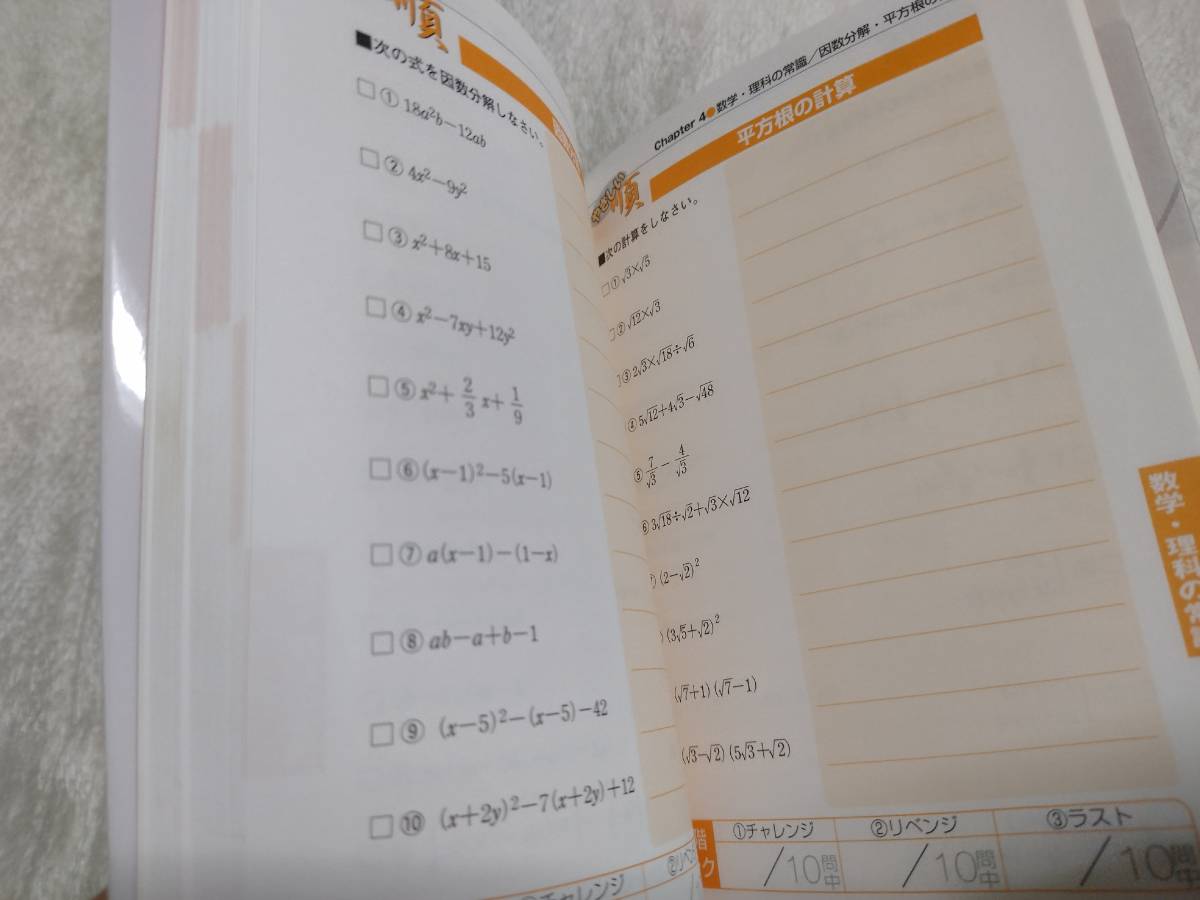 順
■次の式を因数分解しなさい。
□① 18a²b−12ab
□② 4x²−9y²
□③ x²+8x+15
□④ x²−7xy+12y²
□⑤ x²+2/3x+1/9
□⑥ (x−1)²−5(x−1)
□⑦ a(x−1)−(1−x)
□⑧ ab−a+b−1
□⑨ (x−5)²−(x−5)−42
□⑩ (x+2y)²−7(x+2y)+12
チャレンジ
②リベン
Chapter 4●数学・理科の常識/因数分解・平方根の
やさしい順
平方根の計算
■次の計算をしなさい。
□① √3×√5
② √12×√3
③ 2√3×√18÷√6
④ 5√12+4√3−√48
⑤ 7/√3−4/√3
⑥ 3√18÷√2+√3×√12
(2−√2)²
(3√5+√2)²
(√7+1)(√7−1)
(√3−√2)(5√3+√2)
①チャレンジ
②リベンジ
③ラスト
/10問中
/10問中
/10問中
ク
数学・理科の常